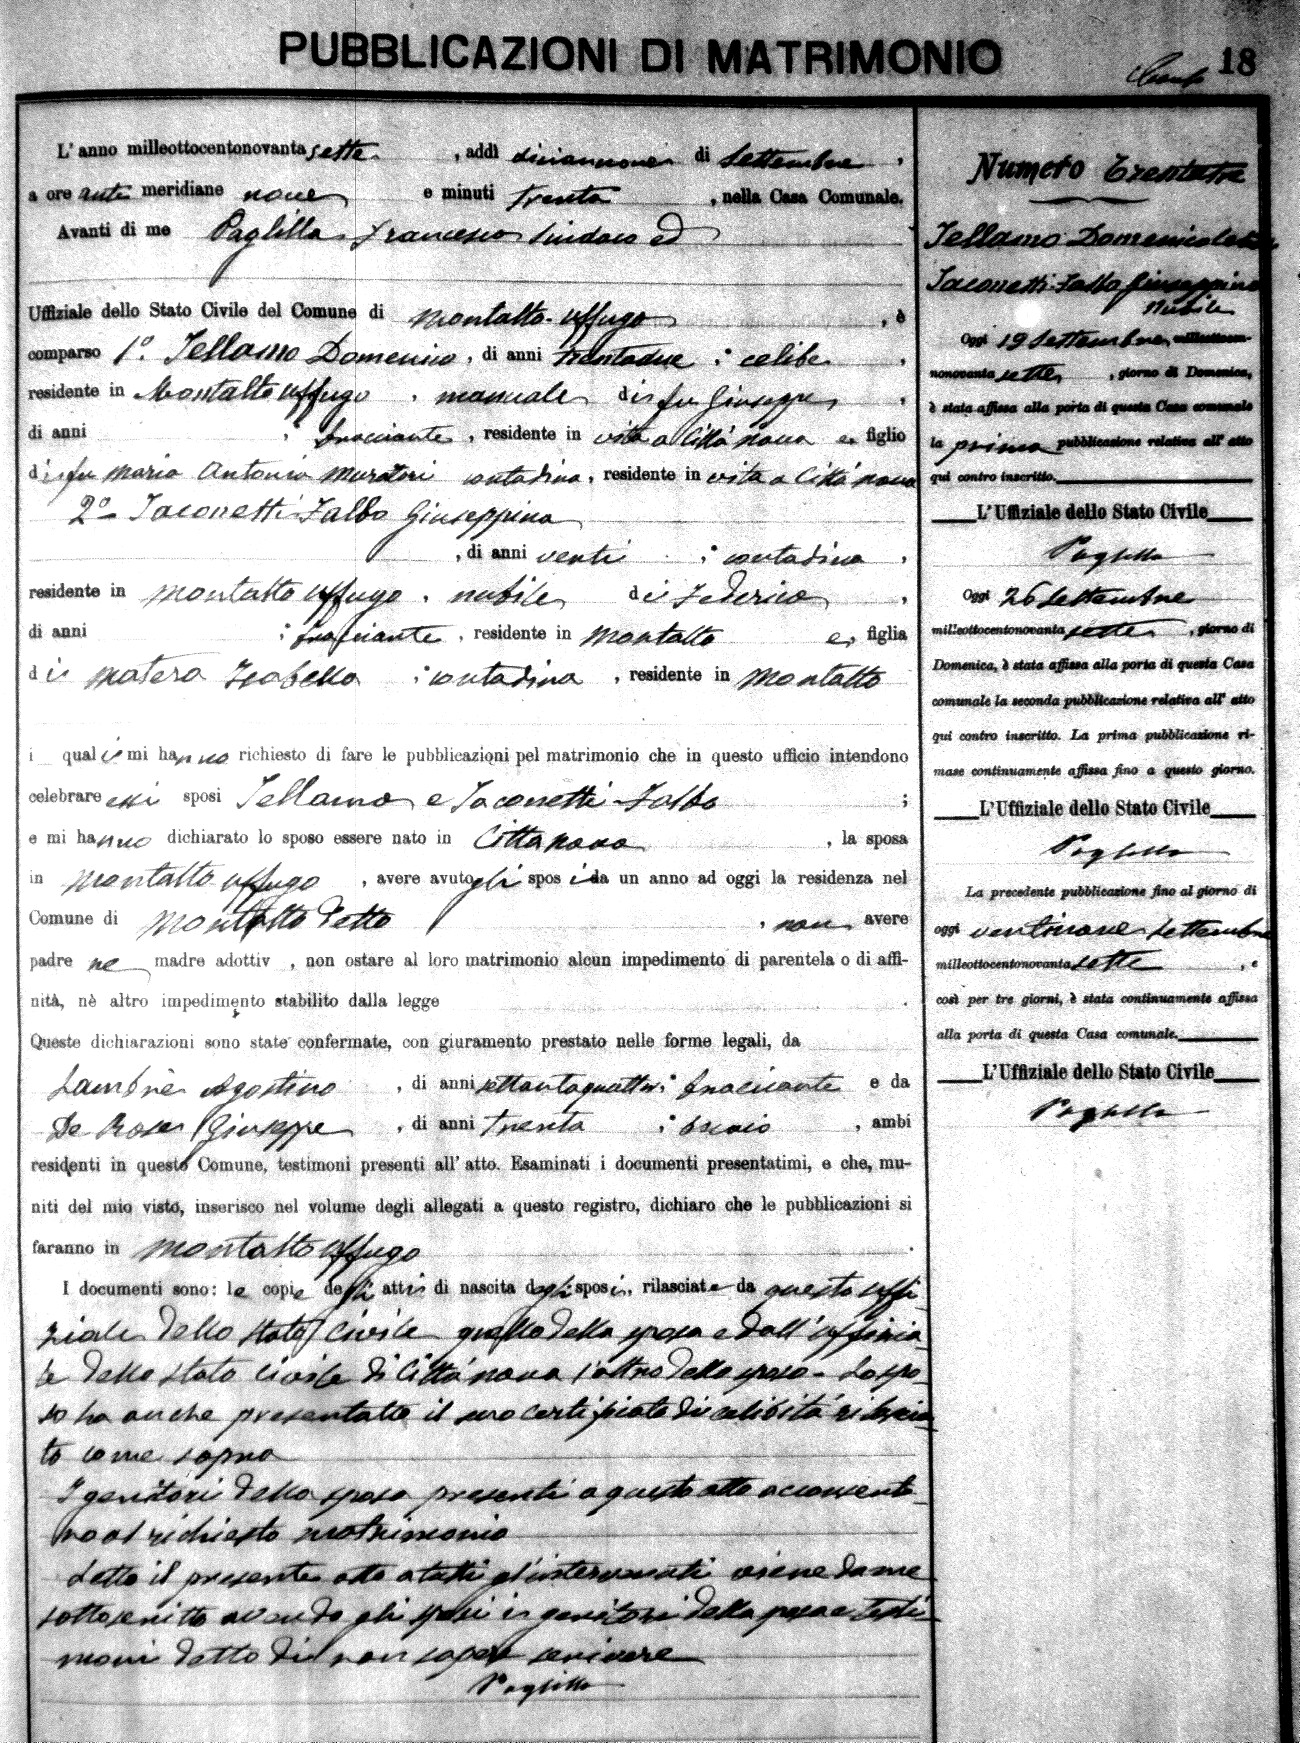 PUBBLICAZIONI DI MATRIMONIO
18
L'anno milleottocentonovanta sette, addì diciannove di Settembre,
a ore ante meridiane nove e minuti trenta, nella Casa Comunale.
Avanti di me Paglilla Francesco Sindaco ed
Uffiziale dello Stato Civile del Comune di Montalto Uffugo, è
comparso 1º. Tellamo Domenico, di anni trentadue; celibe,
residente in Montalto Uffugo, manuale, di fu Giuseppe,
di anni ; bracciante, residente in vita a Cittànova e figlio
di fu Maria Antonia Muratori contadina, residente in vita a Cittànova
2º Iaconetti Falbo Giuseppina
, di anni venti ; contadina,
residente in Montalto Uffugo, nubile di Federico,
di anni ; bracciante, residente in Montalto e figlia
di Matera Isabella ; contadina, residente in Montalto
i quali mi hanno richiesto di fare le pubblicazioni pel matrimonio che in questo ufficio intendono
celebrare essi sposi Tellamo e Iaconetti Falbo ;
e mi hanno dichiarato lo sposo essere nato in Cittanova, la sposa
in Montalto Uffugo, avere avuto gli sposi da un anno ad oggi la residenza nel
Comune di Montalto detto, non avere
padre ne madre adottiv , non ostare al loro matrimonio alcun impedimento di parentela o di affi-
nità, nè altro impedimento stabilito dalla legge
Queste dichiarazioni sono state confermate, con giuramento prestato nelle forme legali, da
Agostino, di anni settantaquattro; bracciante e da
De Rose Giuseppe, di anni trenta ; , ambi
residenti in questo Comune, testimoni presenti all'atto. Esaminati i documenti presentatimi, e che, mu-
niti del mio visto, inserisco nel volume degli allegati a questo registro, dichiaro che le pubblicazioni si
faranno in Montalto Uffugo.
I documenti sono: le copie degli atti di nascita degli sposi, rilasciate da questo uffi-
ziale dello stato civile quella della sposa e dall'uffizia-
le dello stato civile di Cittànova l'altra dello sposo - Lo spo-
so ha anche presentato il suo certificato di celibità rilascia-
to come sopra
I genitori della sposa presenti a questo atto acconsento-
no al richiesto matrimonio
Letto il presente atto a tutti gl'intervenuti viene da me
sottoscritto avendo gli sposi i genitori della sposa e testi-
moni detto di non sapere scrivere
Paglilla
Numero trentatre
Tellamo Domenico celibe
Iaconetti Falbo Giuseppina
nubile
Oggi 19 Settembre milleottocen-
nonovanta sette, giorno di Domenica,
è stata affissa alla porta di questa Casa comunale
la prima pubblicazione relativa all'atto
qui contro inscritto.
L'Uffiziale dello Stato Civile
Paglilla
Oggi 26 Settembre
milleottocentonovanta sette, giorno di
Domenica, è stata affissa alla porta di questa Casa
comunale la seconda pubblicazione relativa all'atto
qui contro inscritto. La prima pubblicazione ri-
mase continuamente affissa fino a questo giorno.
L'Uffiziale dello Stato Civile
Paglilla
La precedente pubblicazione fino al giorno di
oggi ventinove Settembre
milleottocentonovanta sette, e
così per tre giorni, è stata continuamente affissa
alla porta di questa Casa comunale.
L'Uffiziale dello Stato Civile
Paglilla